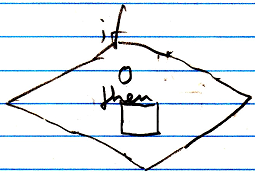 if
O
then